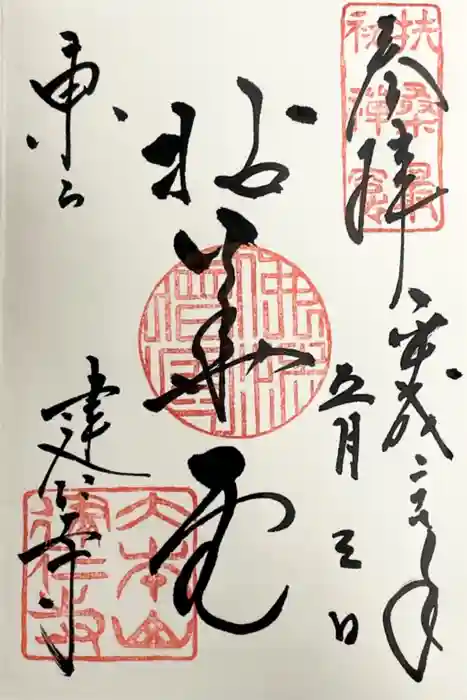 扶桑最
初禅窟
奉拝
平成二年
五月三日
拈華堂
佛法
僧寶
東山
建仁寺
大本山
建仁寺